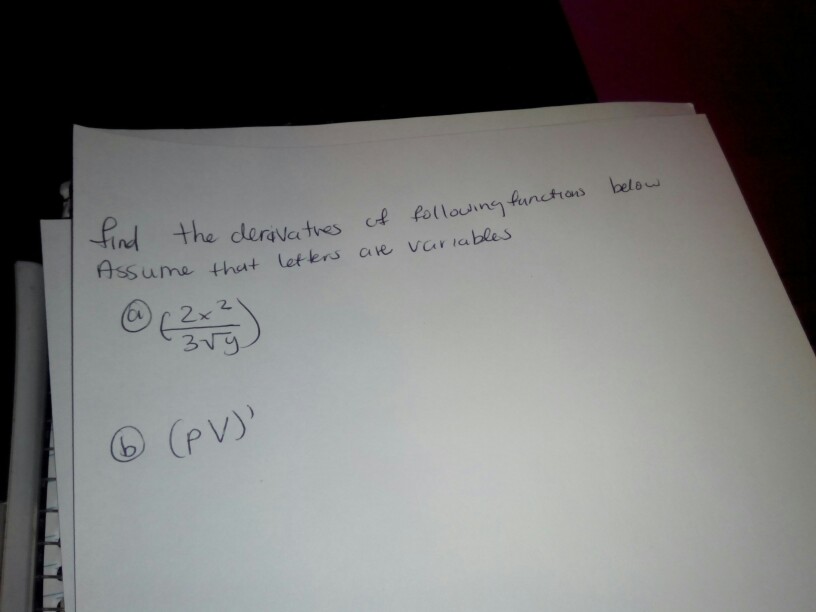 find the derivatives of following functions below
Assume that letters are variables
(a) (2x²/3√y)
(b) (pV)'